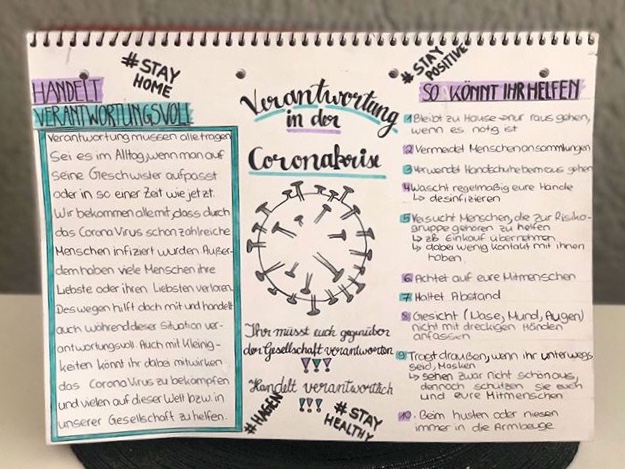 #STAY
HOME
HANDELT
VERANTWORTUNGSVOLL
Verantwortung müssen alle tragen
Sei es im Alltag, wenn man auf
seine Geschwister aufpasst
oder in so einer Zeit wie jetzt.
Wir bekommen alle mit, dass durch
das Corona Virus schon zahlreiche
Menschen infiziert wurden. Außer-
dem haben viele Menschen ihre
Liebste oder ihren Liebsten verloren.
Deswegen hilft doch mit und handelt
auch während dieser Situation ver-
antwortungsvoll. Auch mit Kleinig-
keiten könnt ihr dabei mitwirken
das Corona Virus zu bekämpfen
und vielen auf dieser Welt bzw. in
unserer Gesellschaft zu helfen.
Verantwortung
in der
Coronakrise
Ihr müsst euch gegenüber
der Gesellschaft verantworten
!!!
Handelt verantwortlich
!!!
#HAGEN
#STAY
HEALTHY
#STAY
POSITIVE
SO KÖNNT IHR HELFEN
1 Bleibt zu Hause → nur raus gehen,
wenn es nötig ist
2 Vermeidet Menschenansammlungen
3 Verwendet Handschuhe beim raus gehen
4 Wascht regelmäßig eure Hände
↳ desinfizieren
5 Versucht Menschen, die zur Risiko-
gruppe gehören zu helfen
↳ z.B. Einkauf übernehmen
↳ dabei wenig Kontakt mit ihnen
haben.
6 Achtet auf eure Mitmenschen
7 Haltet Abstand
8 Gesicht (Nase, Mund, Augen)
nicht mit dreckigen Händen
anfassen
9 Tragt draußen, wenn ihr unterwegs
seid, Masken
↳ sehen zwar nicht schön aus,
dennoch schützen sie euch
und eure Mitmenschen
10. Beim husten oder niesen
immer in die Armbeuge